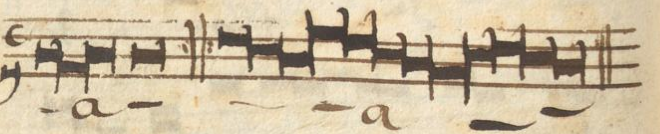 - a - - - a - -